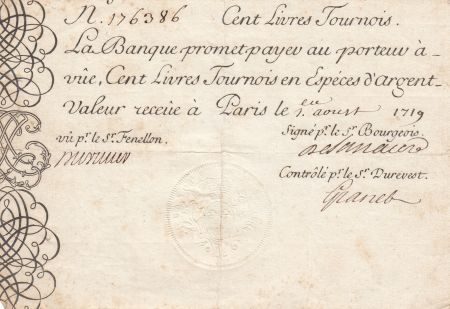 N. 176386 Cent Livres Tournois.
La Banque promet payer au porteur à
vüe, Cent Livres Tournois en Espéces d'argent
Valeur receüe à Paris le 1.er aoust 1719
vû p.r le S.r Fenellon.
Signé p.r le S.r Bourgeois.
Contrôlé p.r le S.r Durevest.
Granet